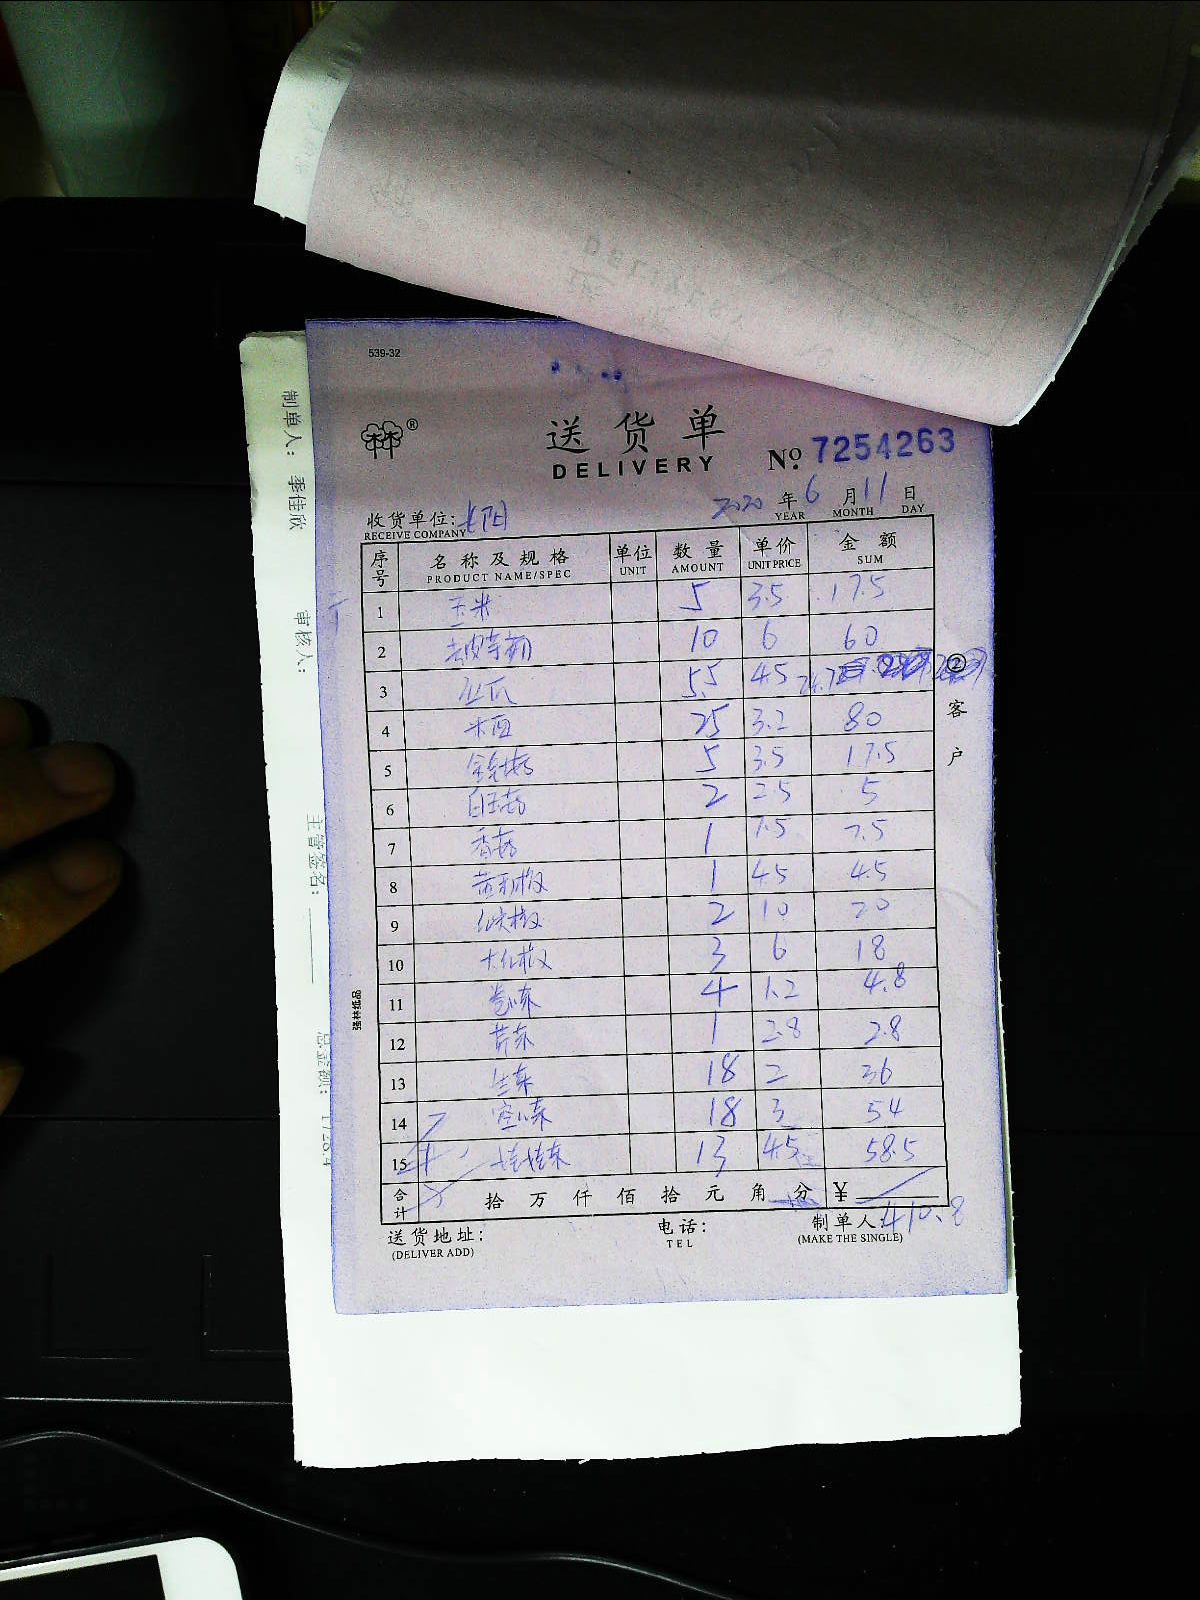 539-32
林®
送货单
DELIVERY
No. 7254263
2020年6月11日
YEAR MONTH DAY
收货单位:长阳
RECEIVE COMPANY
序号 名称及规格 单位 数量 单价 金额
PRODUCT NAME/SPEC UNIT AMOUNT UNIT PRICE SUM
1 玉米 5 3.5 17.5
2 10 6 60
3 5.5 4.5 24.7
4 25 3.2 80
5 5 3.5 17.5
6 白玉菇 2 2.5 5
7 香菇 1 7.5 7.5
8 1 4.5 4.5
9 2 10 20
10 3 6 18
11 4 1.2 4.8
12 1 2.8 2.8
13 生菜 18 2 36
14 18 3 54
15 娃娃菜 13 4.5 58.5
合计 拾 万 仟 佰 拾 元 角 分 ¥
410.8
送货地址:
(DELIVER ADD)
电话:
TEL
制单人:
(MAKE THE SINGLE)
②客户
强林纸品
制单人: 季佳欣
审核人:
主管签名:
总金额: 1728.4